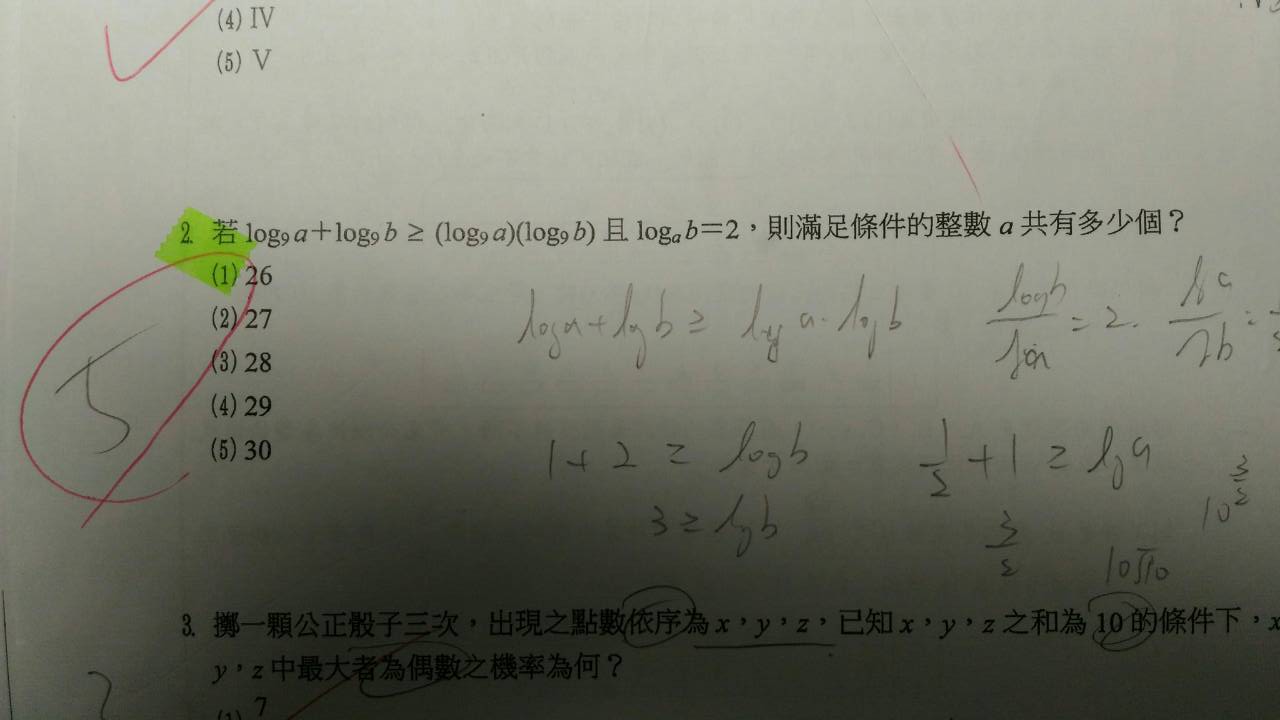 (4) IV
(5) V
2. 若 log₉a+log₉b ≥ (log₉a)(log₉b) 且 logₐb=2，則滿足條件的整數 a 共有多少個？
(1) 26
(2) 27
(3) 28
(4) 29
(5) 30
5
loga+logb ≥ log a·logb
logb/loga = 2.
1+2 ≥ logb
3 ≥ lgb
1/2 +1 ≥ lg a
3/2
10^(3/2)
10√10
3. 擲一顆公正骰子三次，出現之點數依序為 x，y，z，已知 x，y，z 之和為 10 的條件下，x
y，z 中最大者為偶數之機率為何？
(1) 7